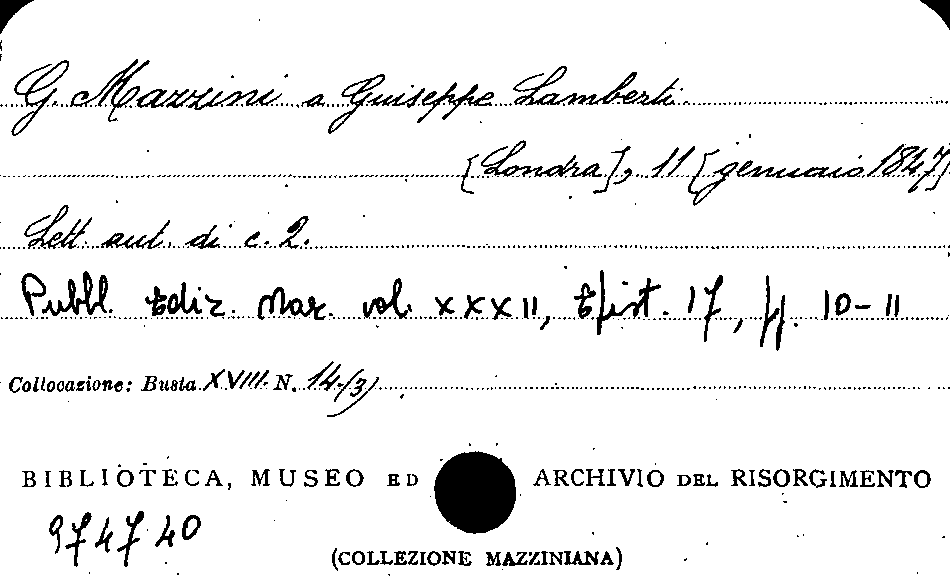 G. Mazzini a Giuseppe Lamberti
[Londra], 11 [gennaio 1847]
Lett. aut. di c. 2.
Pubbl. Ediz. Naz. vol. XXXII, Epist. 17, pp. 10-11
Collocazione: Busta XVIII N. 14(3)
BIBLIOTECA, MUSEO ED ARCHIVIO DEL RISORGIMENTO
974740
(COLLEZIONE MAZZINIANA)